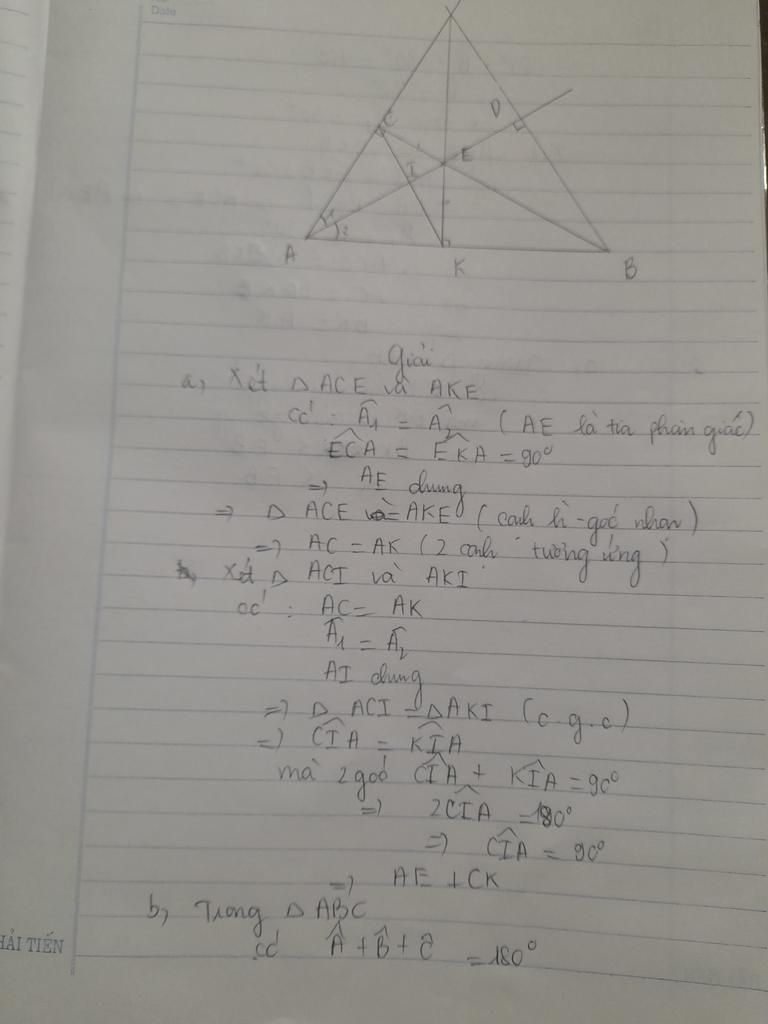 Date
C
D
E
I
1
2
A
K
B
Giải
a, Xét Δ ACE và AKE
Có : Â1 = Â2 ( AE là tia phân giác)
ECA = EKA = 90°
=> AE chung
=> Δ ACE = AKE ( cạnh h - góc nhọn )
=> AC = AK ( 2 cạnh tương ứng )
Xét Δ ACI và AKI
có : AC = AK
Â1 = Â2
AI chung
=> Δ ACI = Δ AKI (c.g.c)
=> CIA = KIA
mà 2 góc CIA + KIA = 90°
=> 2CIA = 180°
=> CIA = 90°
=> AE ⊥ CK
b, Trong Δ ABC
có Â + B̂ + Ĉ = 180°
HẢI TIẾN